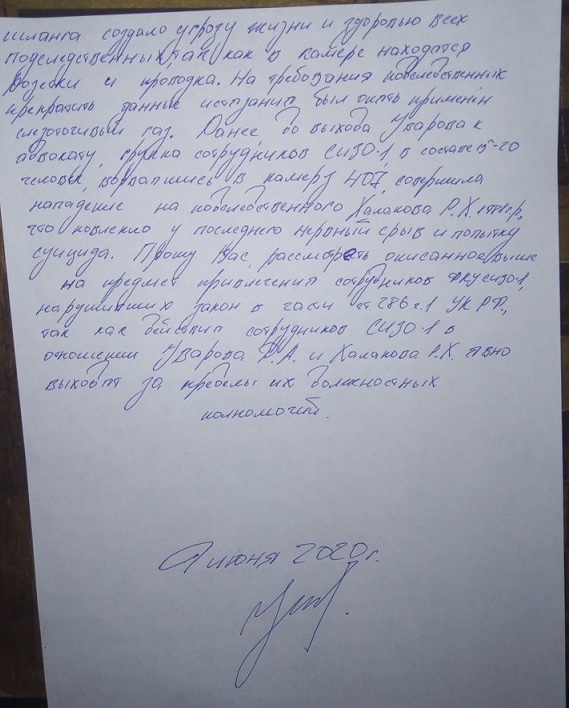 шланга создало угрозу жизни и здоровью всех
подследственных, так как в камере находятся
розетки и проводка. На требования подследственных
прекратить данные истязания был опять применён
слезоточивый газ. Ранее, до выхода Уварова к
адвокату, группа сотрудников СИЗО-1, в составе 15-20
человек, ворвавшись в камеру 407, совершила
нападение на подследственного Халакова Р.Х.
что повлекло у последнего нервный срыв и попытку
суицида. Прошу Вас, рассмотреть описанное выше
на предмет привлечения сотрудников ФКУ СИЗО-1,
нарушивших закон в части ст 286 ч.1 УК РФ,
так как действия сотрудников СИЗО-1 в
отношении Уварова А. и Халакова Р.Х. явно
выходят за пределы их должностных
полномочий.
9 июня 2020 г.